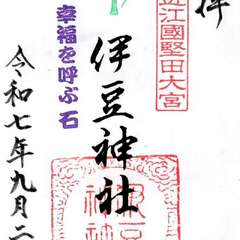 拝
近江國堅田大宮
伊豆神社
幸福を呼ぶ石
令和七年九月二